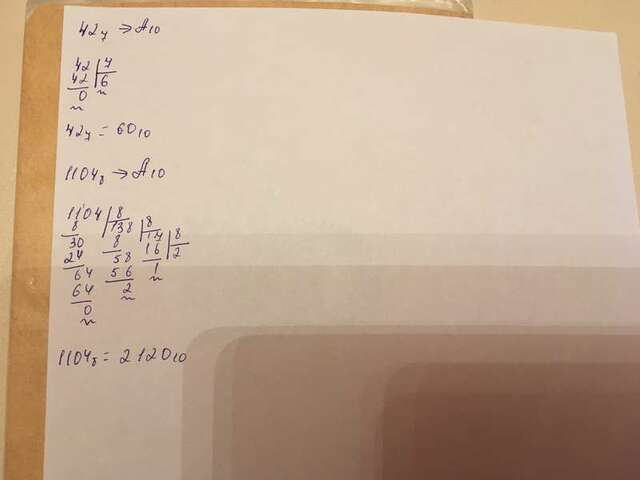 42₇ → A₁₀
42 | 7
42 | 6
0
42₇ = 60₁₀
1104₈ → A₁₀
1104 | 8
8 | 138 | 8
30 8 | 17 | 8
24 58 16 | 2
64 56 1
64 2
0
1104₈ = 2120₁₀